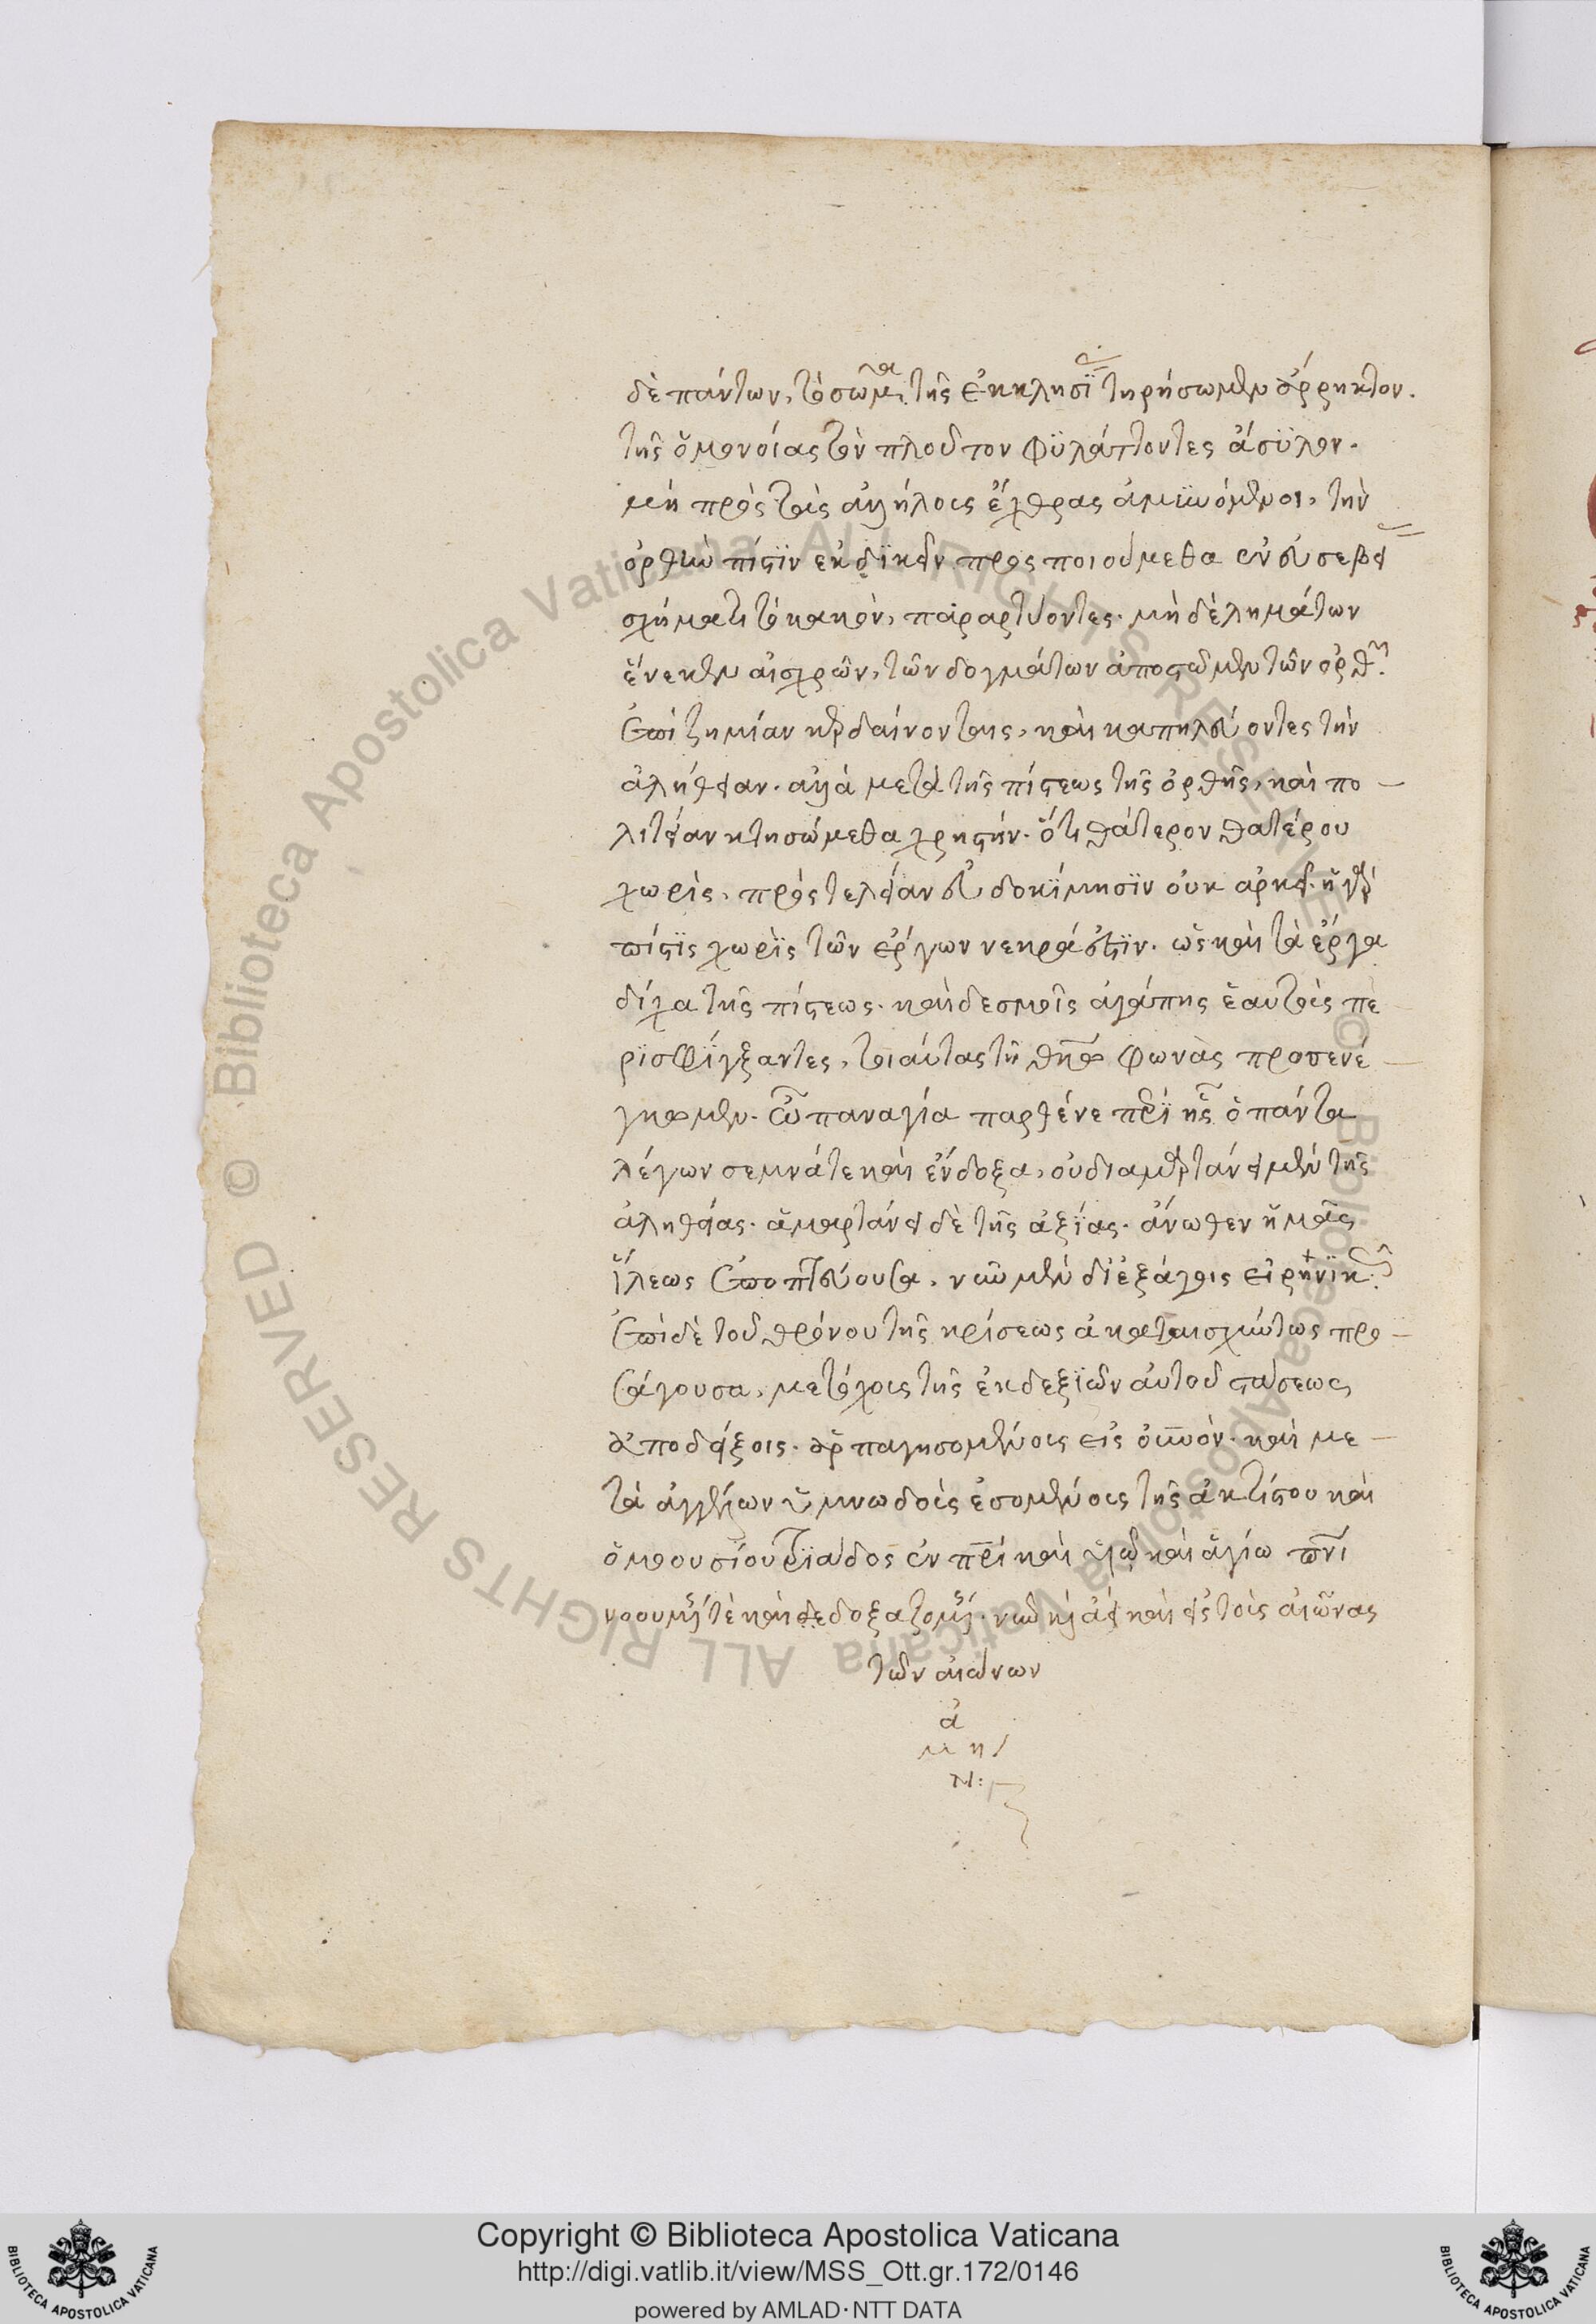 δὲ πάντων, τὸ σῶμα τῆς ἐκκλησί τηρήσωμεν ἄρρηκτον.
τῆς ὁμονοίας τὸν πλοῦτον φϋλάττοντες ἄσϋλον.
μὴ πρὸς τοὺς ἀλλήλους ἔχθρας ἀμϋνόμενοι, τὴν
ὀρθὴν πίστϊν ἐκδϊκεῖν προσποιούμεθα ἐν εὐσεβεῖ
σχήματι τὸ κακὸν, παραρτύοντες. μὴ δὲ λημάτων
ἕνεκεν αἰσχρῶν, τῶν δογμάτων ἀποστῶμεν τῶν ὀρθῶν.
ἐπὶ ζημίαν κερδαίνοντες, καὶ καπηλεύοντες τὴν
ἀλήθειαν. ἀλλὰ μετὰ τῆς πίστεως τῆς ὀρθῆς, καὶ πο-
λιτείαν κτησώμεθα χρηστήν. ὅτι θάτερον θατέρου
χωρὶς, πρὸς τελείαν εὐδοκϊμησϊν οὐκ ἀρκεῖ. ἡ γὰρ
πίστϊς χωρὶς τῶν ἔργων νεκρά ἐστϊν. ὡς καὶ τὰ ἔργα
δίχα τῆς πίστεως. καὶ δεσμοῖς ἀγάπης ἑαυτοὺς πε
ρϊσφϊγξαντες, τοιαύτας τῆ θκῳ φωνὰς προσενέ-
γκωμεν. ὦ παναγία παρθένε περὶ ἧς ὁ πάντα
λέγων σεμνά τε καὶ ἔνδοξα, οὐ διαμαρτάνει μὲν τῆς
ἀληθείας. ἁμαρτάνει δὲ τῆς ἀξϊας. ἄνωθεν ἡμᾶς
ἵλεως ἐποπτεύουσα, νῦν μὲν διεξάγοις εἰρηνϊκῶς.
ἐπὶ δὲ τοῦ θρόνου τῆς κρίσεως ἀκαταισχύντως προ-
σάγουσα, μετόχους τῆς ἐκ δεξϊῶν αὐτοῦ στάσεως
ἀποδείξοις. ἁρπαγησομένους εἰς οὐνόν. καὶ με-
τὰ ἀγγέλων ὑμνωδοὺς ἐσομένους τῆς ἀκτίστου καὶ
ὁμοουσίου τρϊάδος ἐν πρί καὶ υἱῶ καὶ ἁγίω πνι
νοουμένης τὲ καὶ δεδοξαζομένης. νῦν καὶ ἀεὶ καὶ εἰς τοὺς αἰῶνας
τῶν αἰώνων
ἀ
μη
ν:
Copyright © Biblioteca Apostolica Vaticana
http://digi.vatlib.it/view/MSS_Ott.gr.172/0146
powered by AMLAD·NTT DATA
BIBLIOTECA APOSTOLICA VATICANA
BIBLIOTECA APOSTOLICA VATICANA
© Biblioteca Apostolica Vaticana ALL RIGHTS RESERVED
© Biblioteca Apostolica Vaticana ALL RIGHTS RESERVED